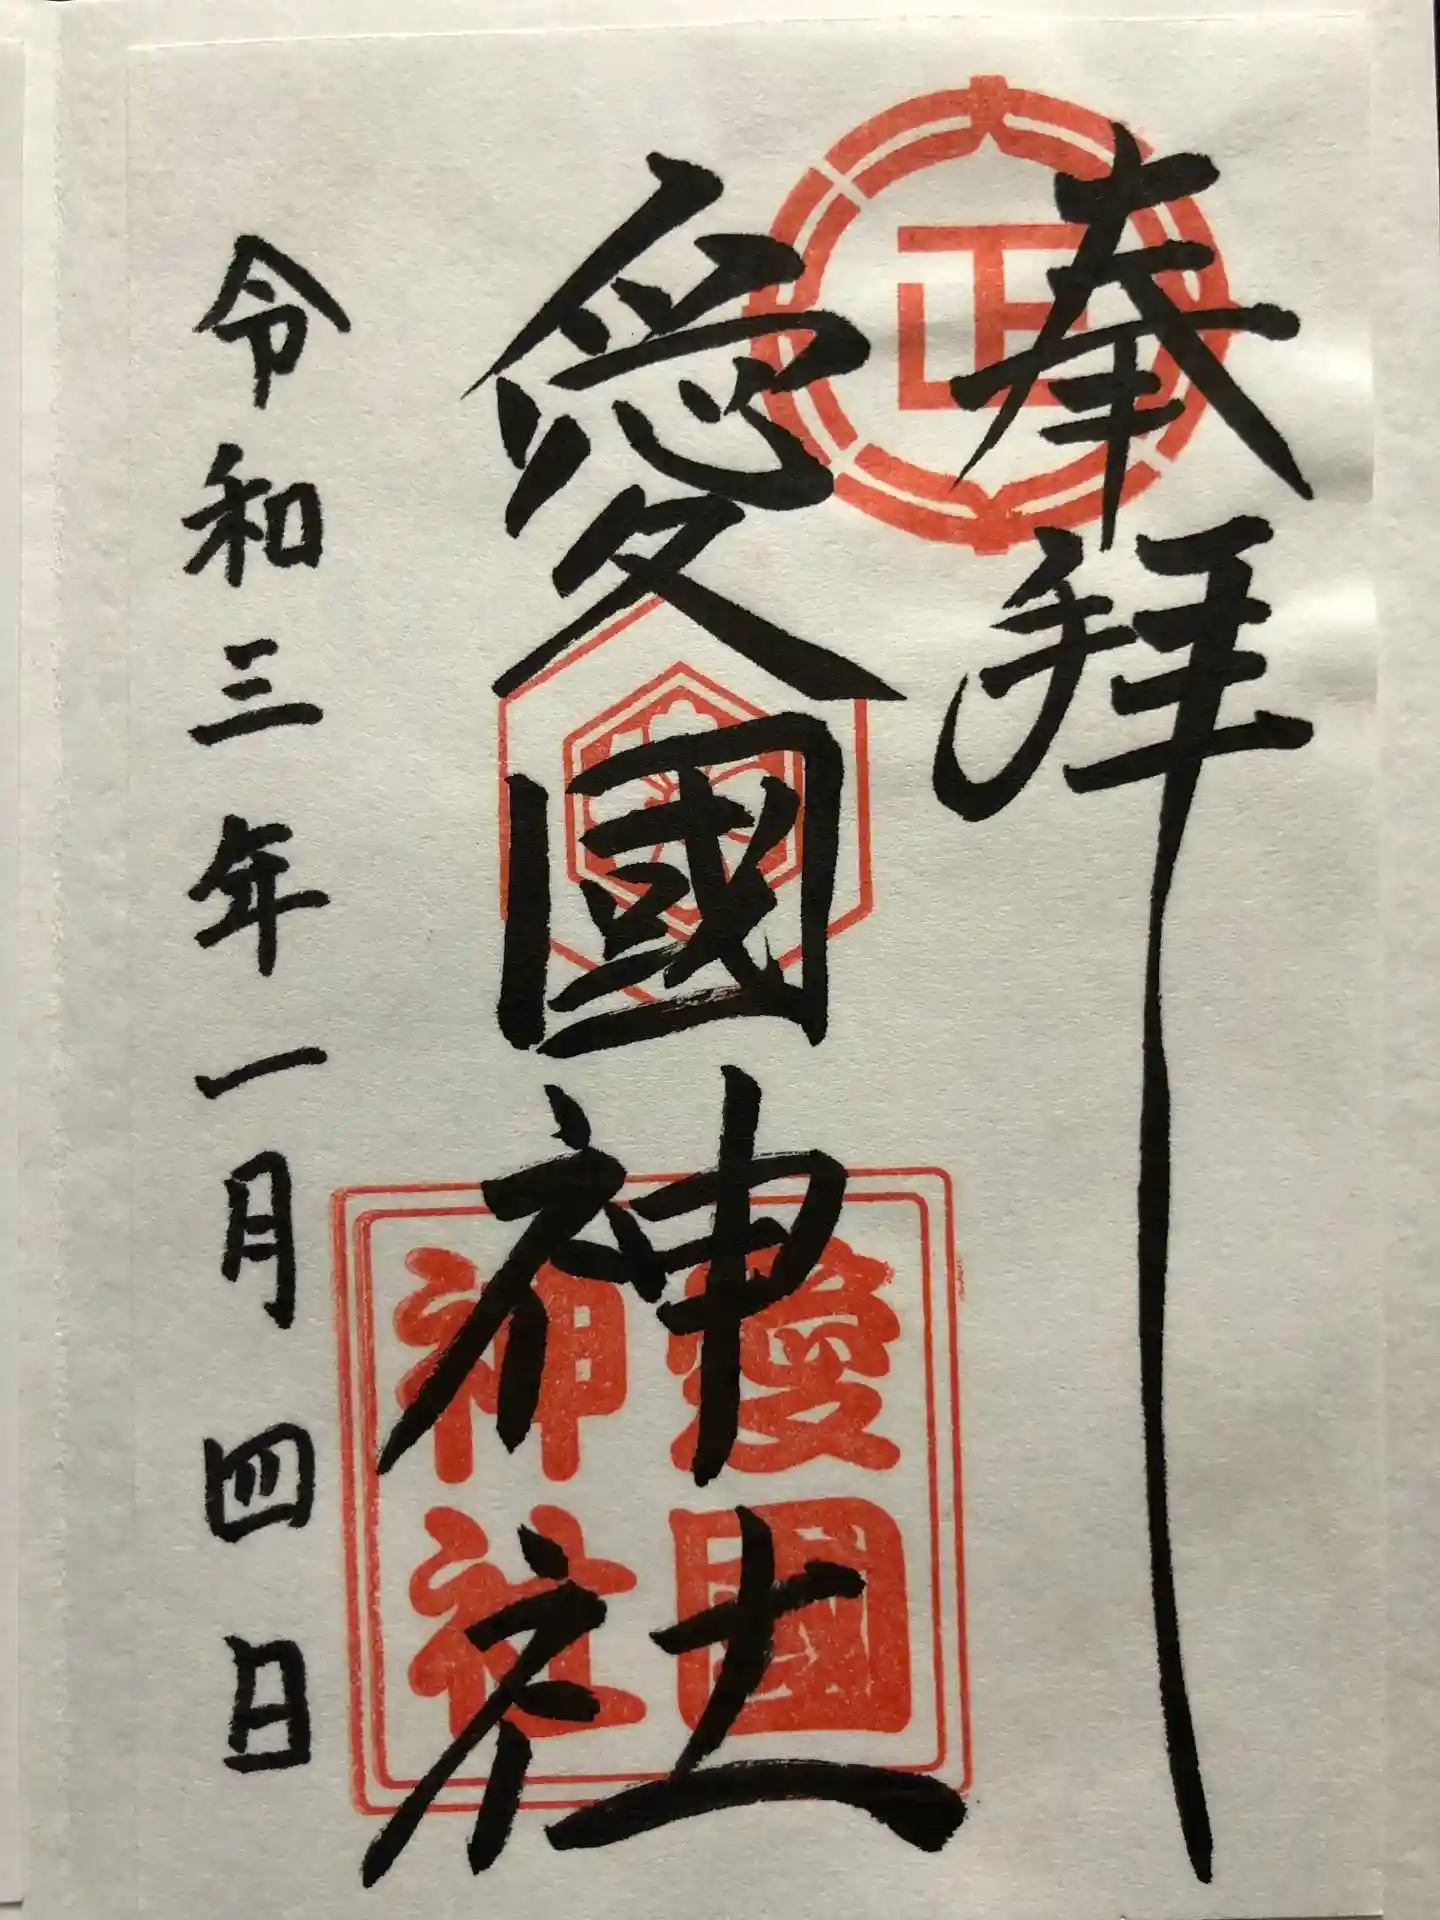 奉拝
愛國神社
愛國
神社
令和三年一月四日